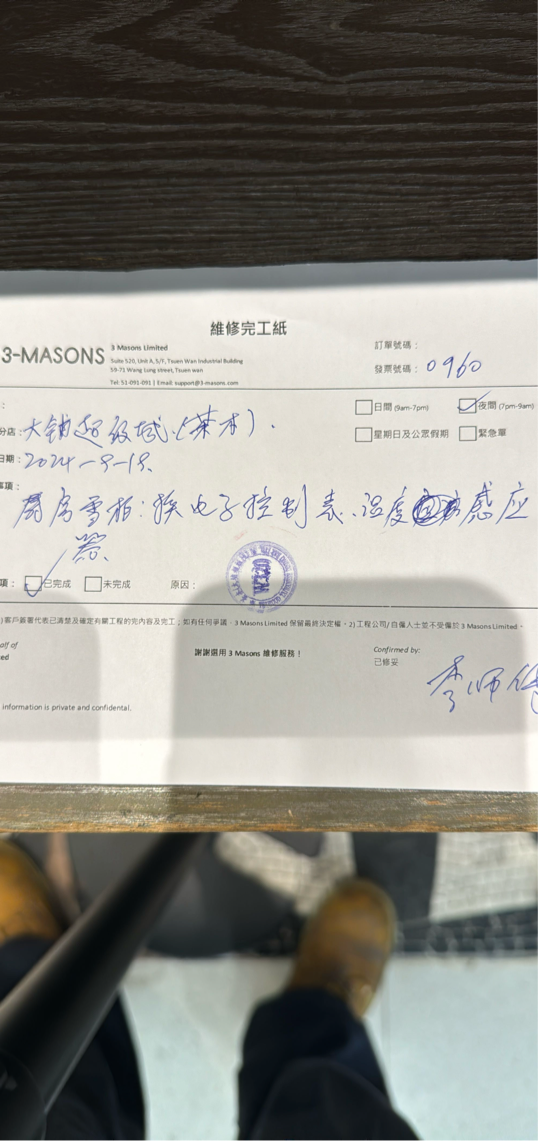 維修完工紙
3-MASONS
3 Masons Limited
Suite 520, Unit A, 5/F, Tsuen Wan Industrial Building
59-71 Wang Lung street, Tsuen wan
Tel: 51-091-091 | Email: support@3-masons.com
訂單號碼：
發票號碼： 0960
：
分店： 大
日間 (9am-7pm) 夜間 (7pm-9am)
星期日及公眾假期 緊急單
日期： 2024-9-18
事項：
房雪柜：换电子控制表、温度感应
器
項： 已完成 未完成 原因：
)客戶簽署代表已清楚及確定有關工程的完內容及完工；如有任何爭議，3 Masons Limited 保留最終決定權。2)工程公司/自僱人士並不受僱於 3 Masons Limited。
alf of
ed
謝謝選用 3 Masons 維修服務！
Confirmed by:
已修妥
李师傅
information is private and confidental.